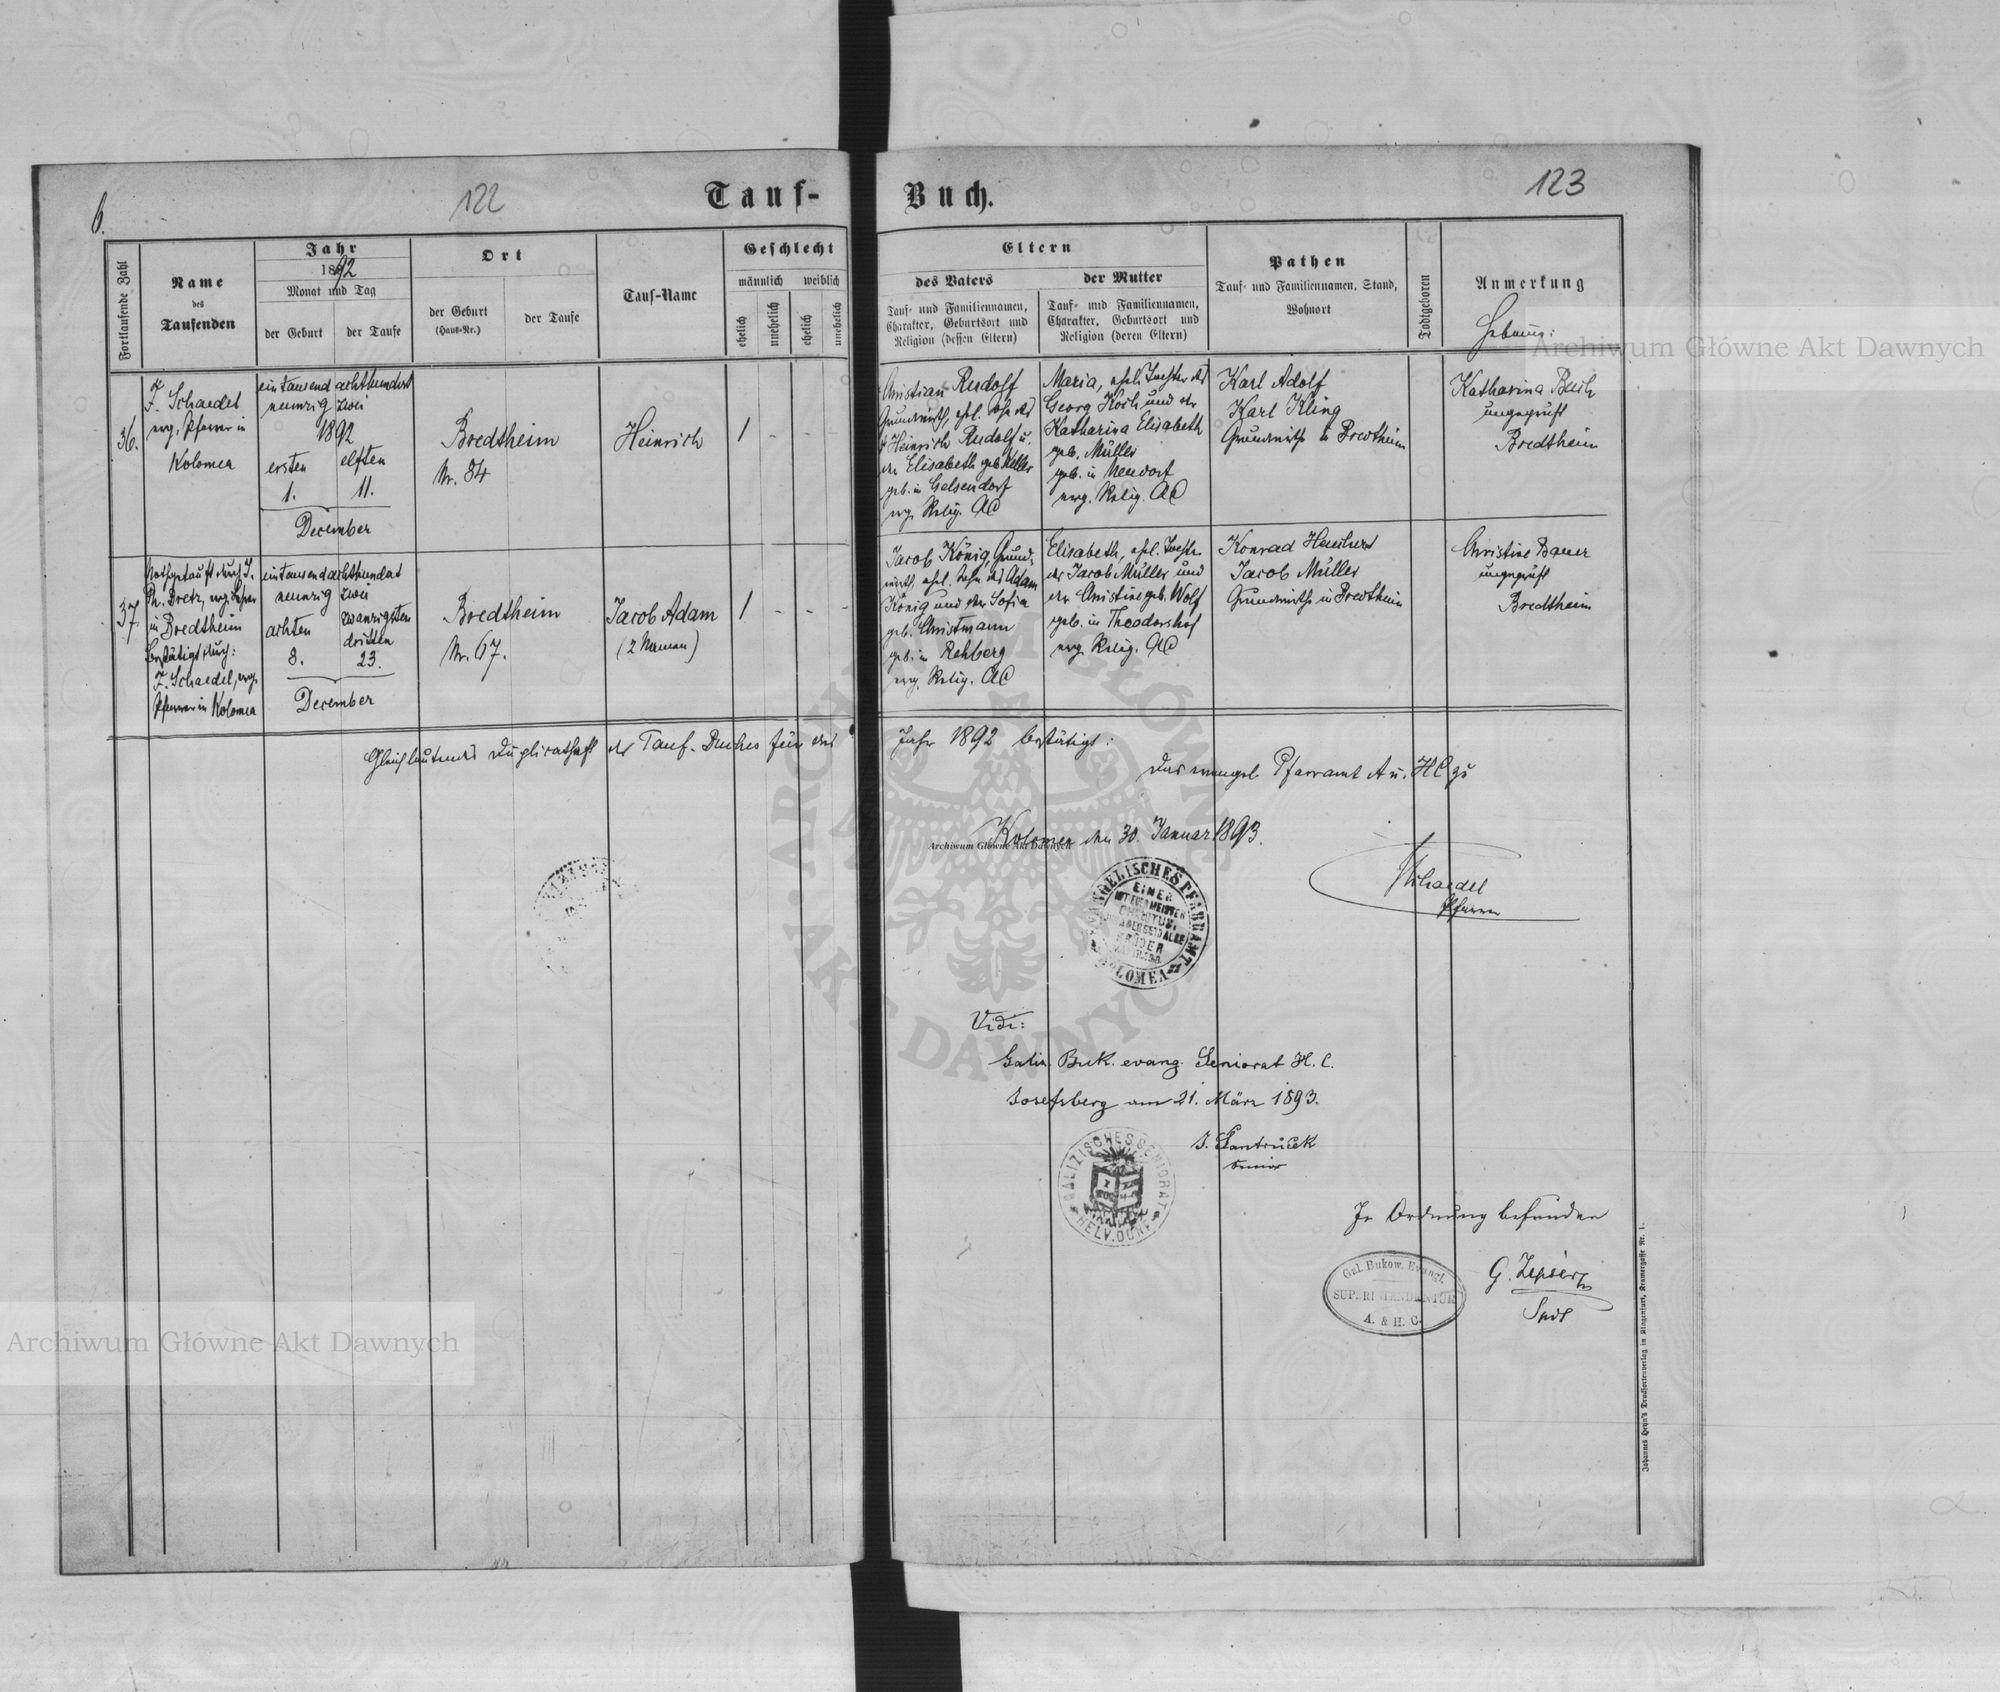 6.
122
Tauf-
Buch.
123
Fortlaufende Zahl
Name
des
Taufenden
Jahr
1892
Monat und Tag
der Geburt
der Taufe
Ort
der Geburt
(Haus-Nr.)
der Taufe
Tauf-Name
Geschlecht
männlich
weiblich
ehelich
unehelich
ehelich
unehelich
Eltern
des Vaters
Tauf- und Familiennamen,
Charakter, Geburtsort und
Religion (dessen Eltern)
der Mutter
Tauf- und Familiennamen,
Charakter, Geburtsort und
Religion (deren Eltern)
Pathen
Tauf- und Familiennamen, Stand,
Wohnort
Todtgeboren
Anmerkung
Hebamme:
36.
F. Schaedel
evg. Pfarrer in
Kolomea
eintausend achthundert
neunzig zwei
1892
ersten
elften
1.
11.
December
Bredtheim
Nr. 84
Heinrich
1
-
-
-
Christian Rudolf
Grundwirth, ehl. Sohn des
† Heinrich Rudolf u.
der Elisabeth geb. Keller
geb. in Gelsendorf
evg. Relig. AC
Maria, ehel. Tochter des
Georg Koch und der
Katharina Elisabeth
geb. Müller
geb. in Neudorf
evg. Relig. AC
Karl Adolf
Karl Kling
Grundwirthe in Bredtheim
Katharina Buch
ungeprüft
Bredtheim
37.
Nothgetauft durch J.
Ph. Bretz, evg. Lehrer
in Bredtheim
Bestätigt durch:
F. Schaedel, evg.
Pfarrer in Kolomea
eintausend achthundert
neunzig zwei
achten
zwanzigsten
dritten
8.
23.
December
Bredtheim
Nr. 67.
Jacob Adam
(2 Namen)
1
-
-
-
Jacob König, Grund-
wirth, ehel. Sohn des Adam
König und der Sofia
geb. Christmann
geb. in Rehberg
evg. Relig. AC
Elisabeth, ehl. Tochter
des Jacob Müller und
der Christine geb. Wolf
geb. in Theodorshof
evg. Relig. AC
Konrad
Jacob Müller
Grundwirthe in Bredtheim
Christine Bauer
ungeprüft
Bredtheim
Gleichlautendes Duplicat des Tauf-Buches für das
Jahr 1892 bestätigt:
Das evangel. Pfarramt A u. HC zu
Kolomea den 30. Januar 1893.
Schaedel
Pfarrer
EVANGELISCHES PFARRAMT
KOLOMEA
EINER
IST EUER MEISTER
CHRISTUS,
IHR ABER SEID ALLE
BRÜDER
Vidi:
Galiz. Buk. evang. Seniorat H. C.
Josefsberg am 21. März 1893.
J. Pantrucek
Senior
GALIZISCHES SENIORAT
HELV. CONF.
In Ordnung befunden
Gal. Bukow. Evangl.
SUPERINTENDENTUR
A. & H. C.
G. Zipser
Spdt
Johannes Heyn's Drucksortenverlag in Klagenfurt, Kramergasse Nr. 1.
Archiwum Główne Akt Dawnych
Archiwum Główne Akt Dawnych
Archiwum Główne Akt Dawnych
ARCHIWUM GŁÓWNE
AKT DAWNYCH